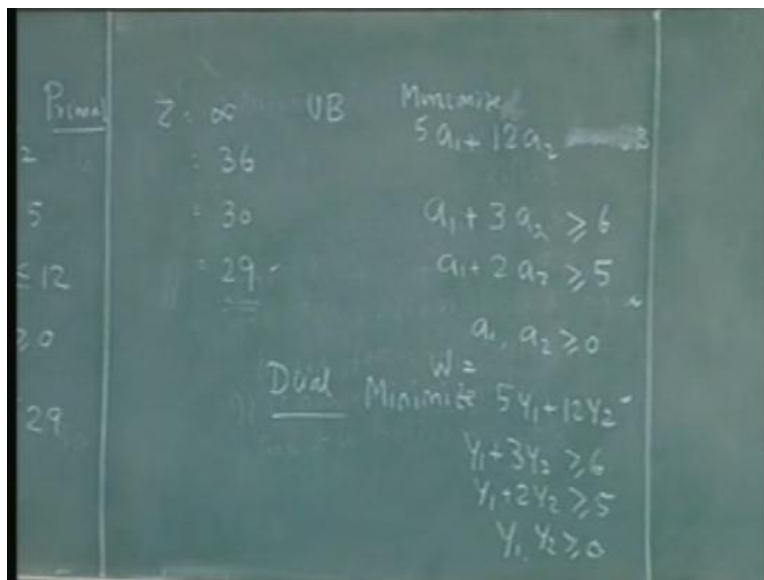 Primal
2
5
≤ 12
≥ 0
29
Z = ∞ UB
= 36
= 30
= 29
Minimize
5a₁ + 12a₂ UB
a₁ + 3a₂ ≥ 6
a₁ + 2a₂ ≥ 5
a₁, a₂ ≥ 0
W =
Dual Minimize 5Y₁ + 12Y₂
Y₁ + 3Y₂ ≥ 6
Y₁ + 2Y₂ ≥ 5
Y₁, Y₂ ≥ 0